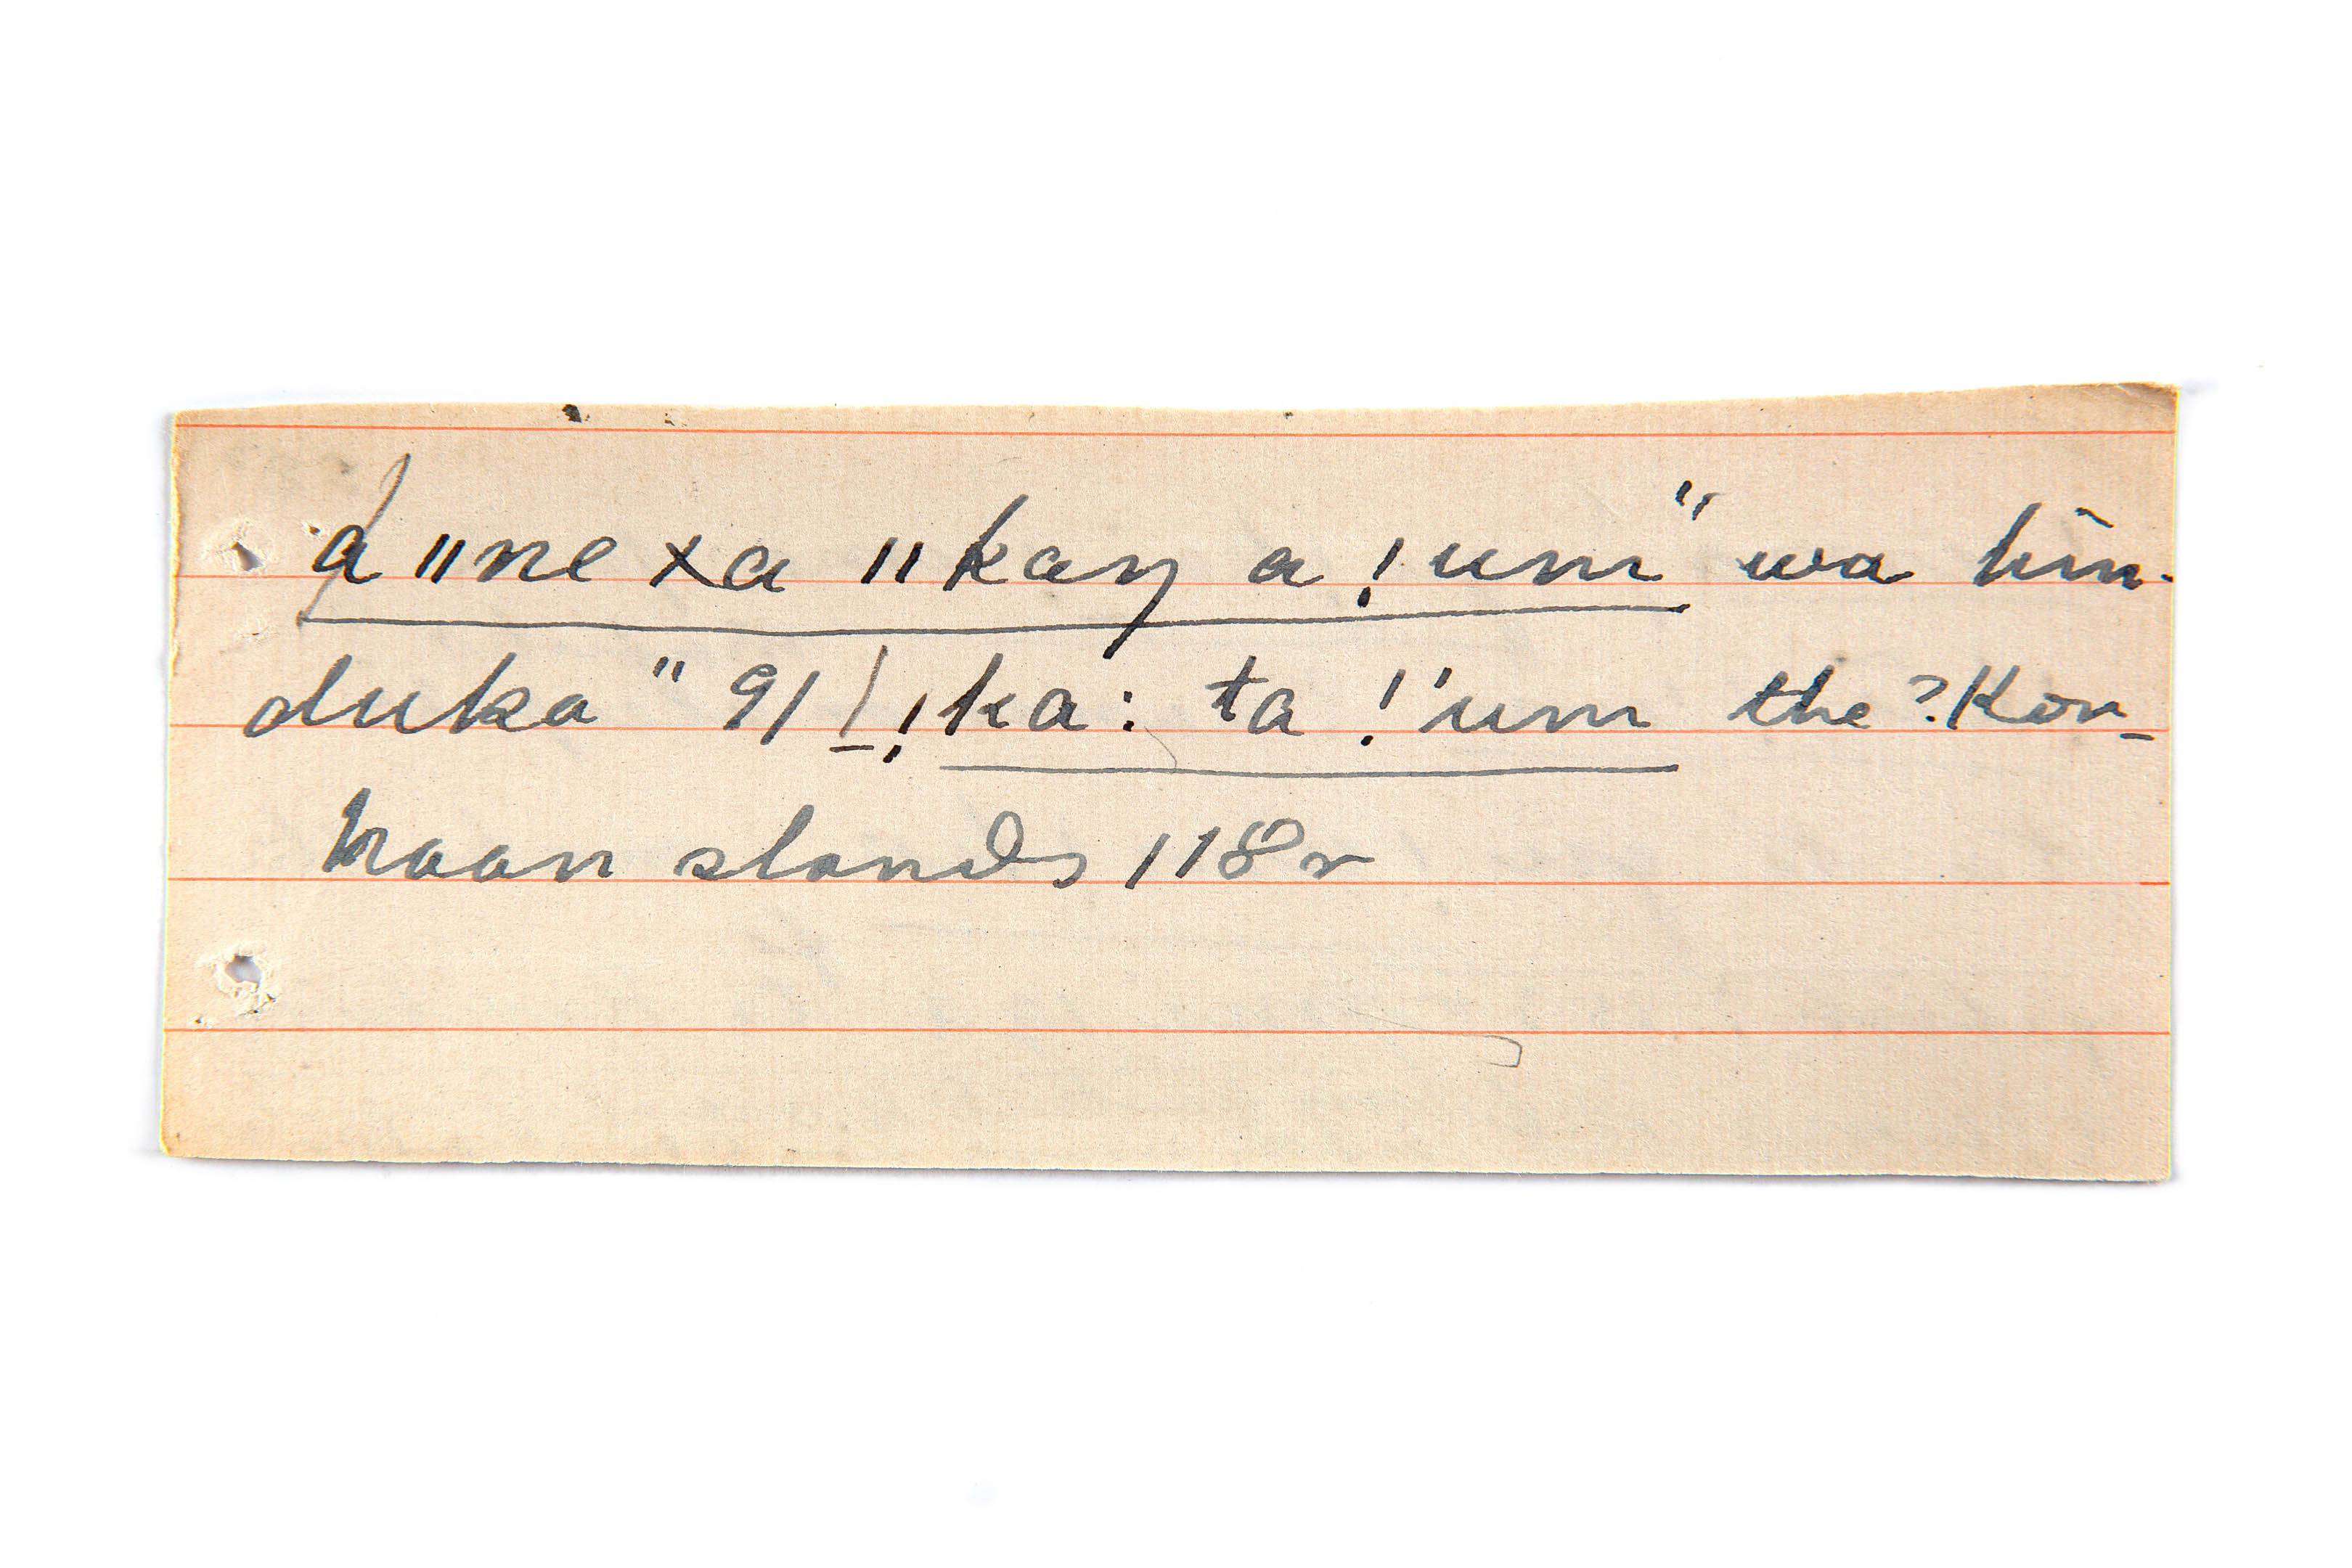 a ǁne xa ǁkaŋ a !um" wa hin-
duka " 91 / !ka: ta !'um the ?Kor-
haan stands 118r